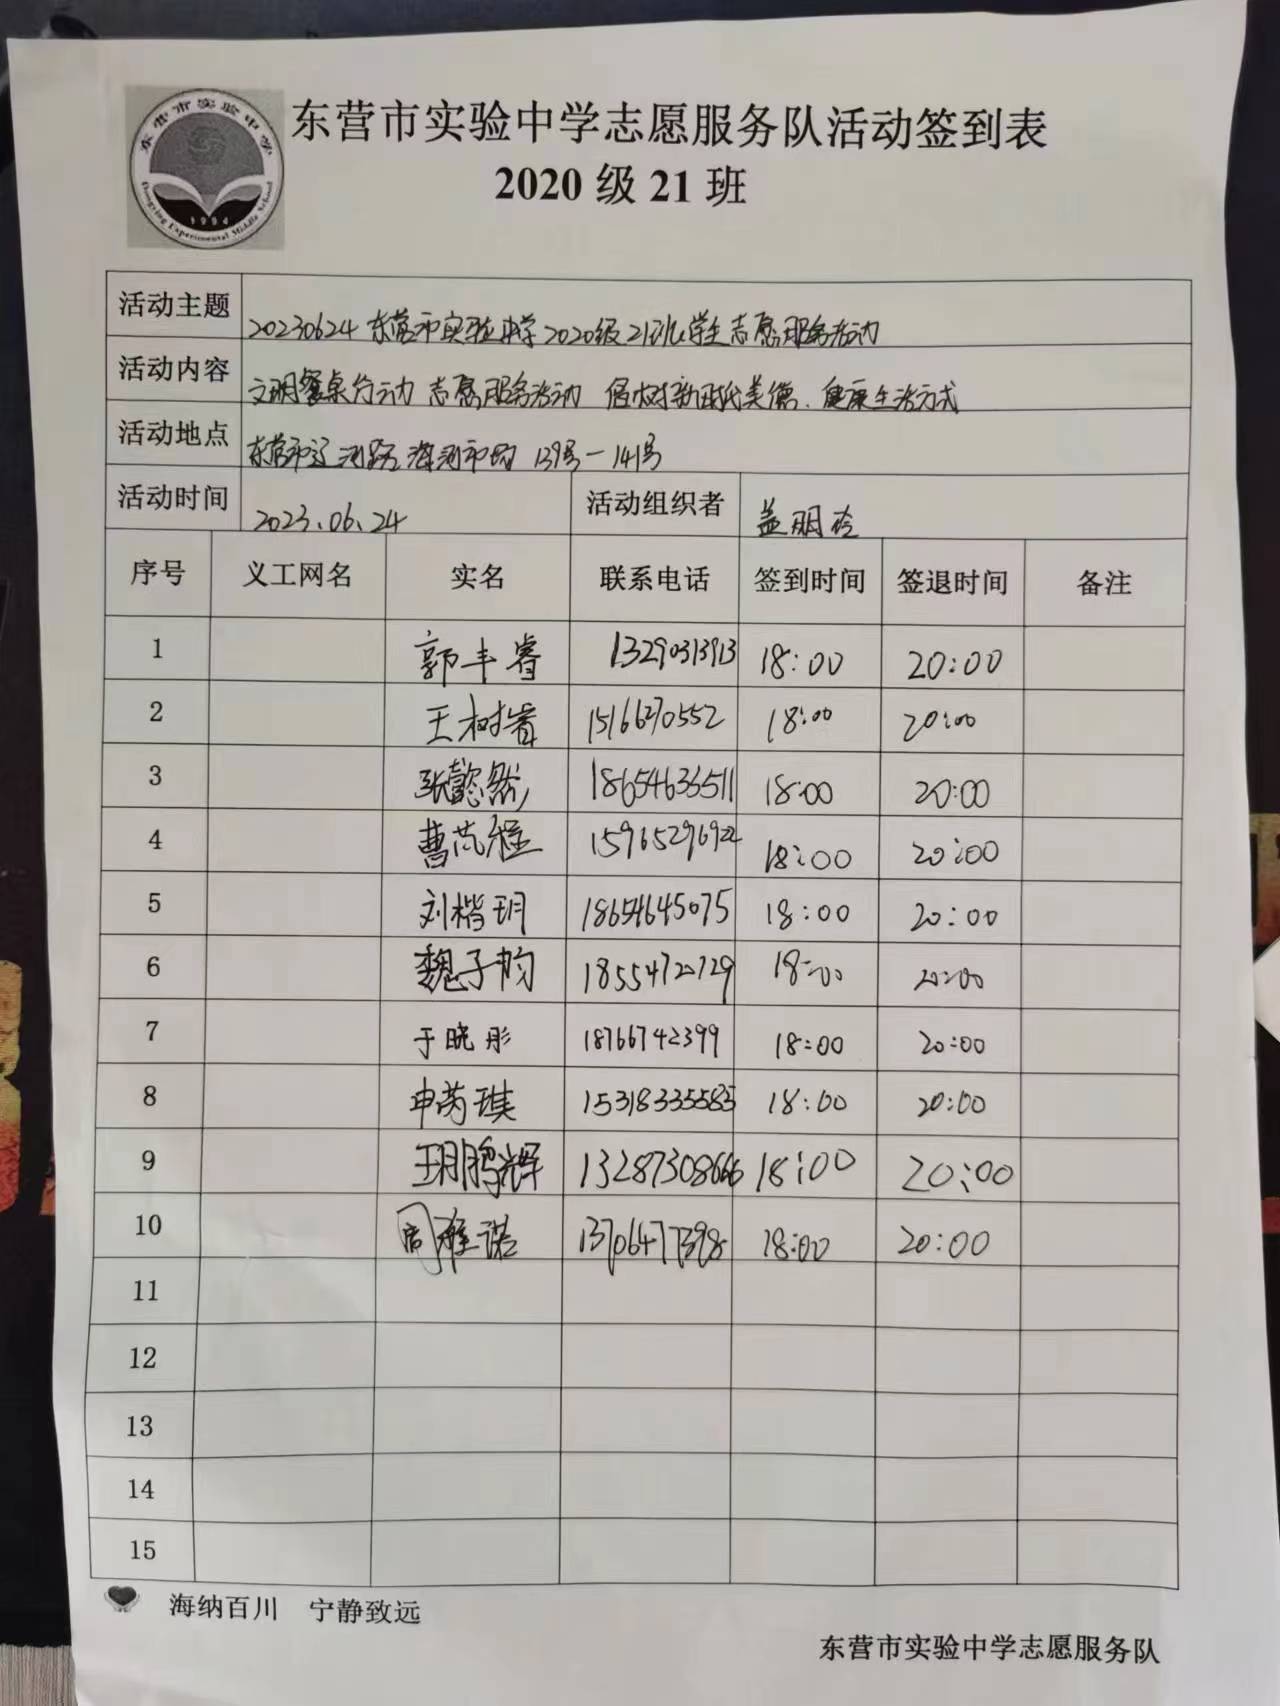 东营市实验中学
Dongying Experimental Middle School
1994
东营市实验中学志愿服务队活动签到表
2020 级 21 班
活动主题 20230624 东营市实验中学2020级21班学生志愿服务活动
活动内容 文明餐桌行动 志愿服务活动 倡树新时代美德、健康生活方式
活动地点 东营市辽河路海河市场 139号-141号
活动时间 2023.06.24 活动组织者
序号 义工网名 实名 联系电话 签到时间 签退时间 备注
1 郭丰睿 13290313913 18:00 20:00
2 王树睿 18:00 20:00
3 张懿然 18654633511 18:00 20:00
4 曹芃程 15965296922 18:00 20:00
5 刘楷玥 18654645075 18:00 20:00
6 魏子昀 18:00 20:00
7 于晓彤 18766742399 18:00 20:00
8 申芮琪 15318335583 18:00 20:00
9 王鹏辉 13287308666 18:00 20:00
10 周雅诺 13706477398 18:00 20:00
11
12
13
14
15
海纳百川 宁静致远
东营市实验中学志愿服务队